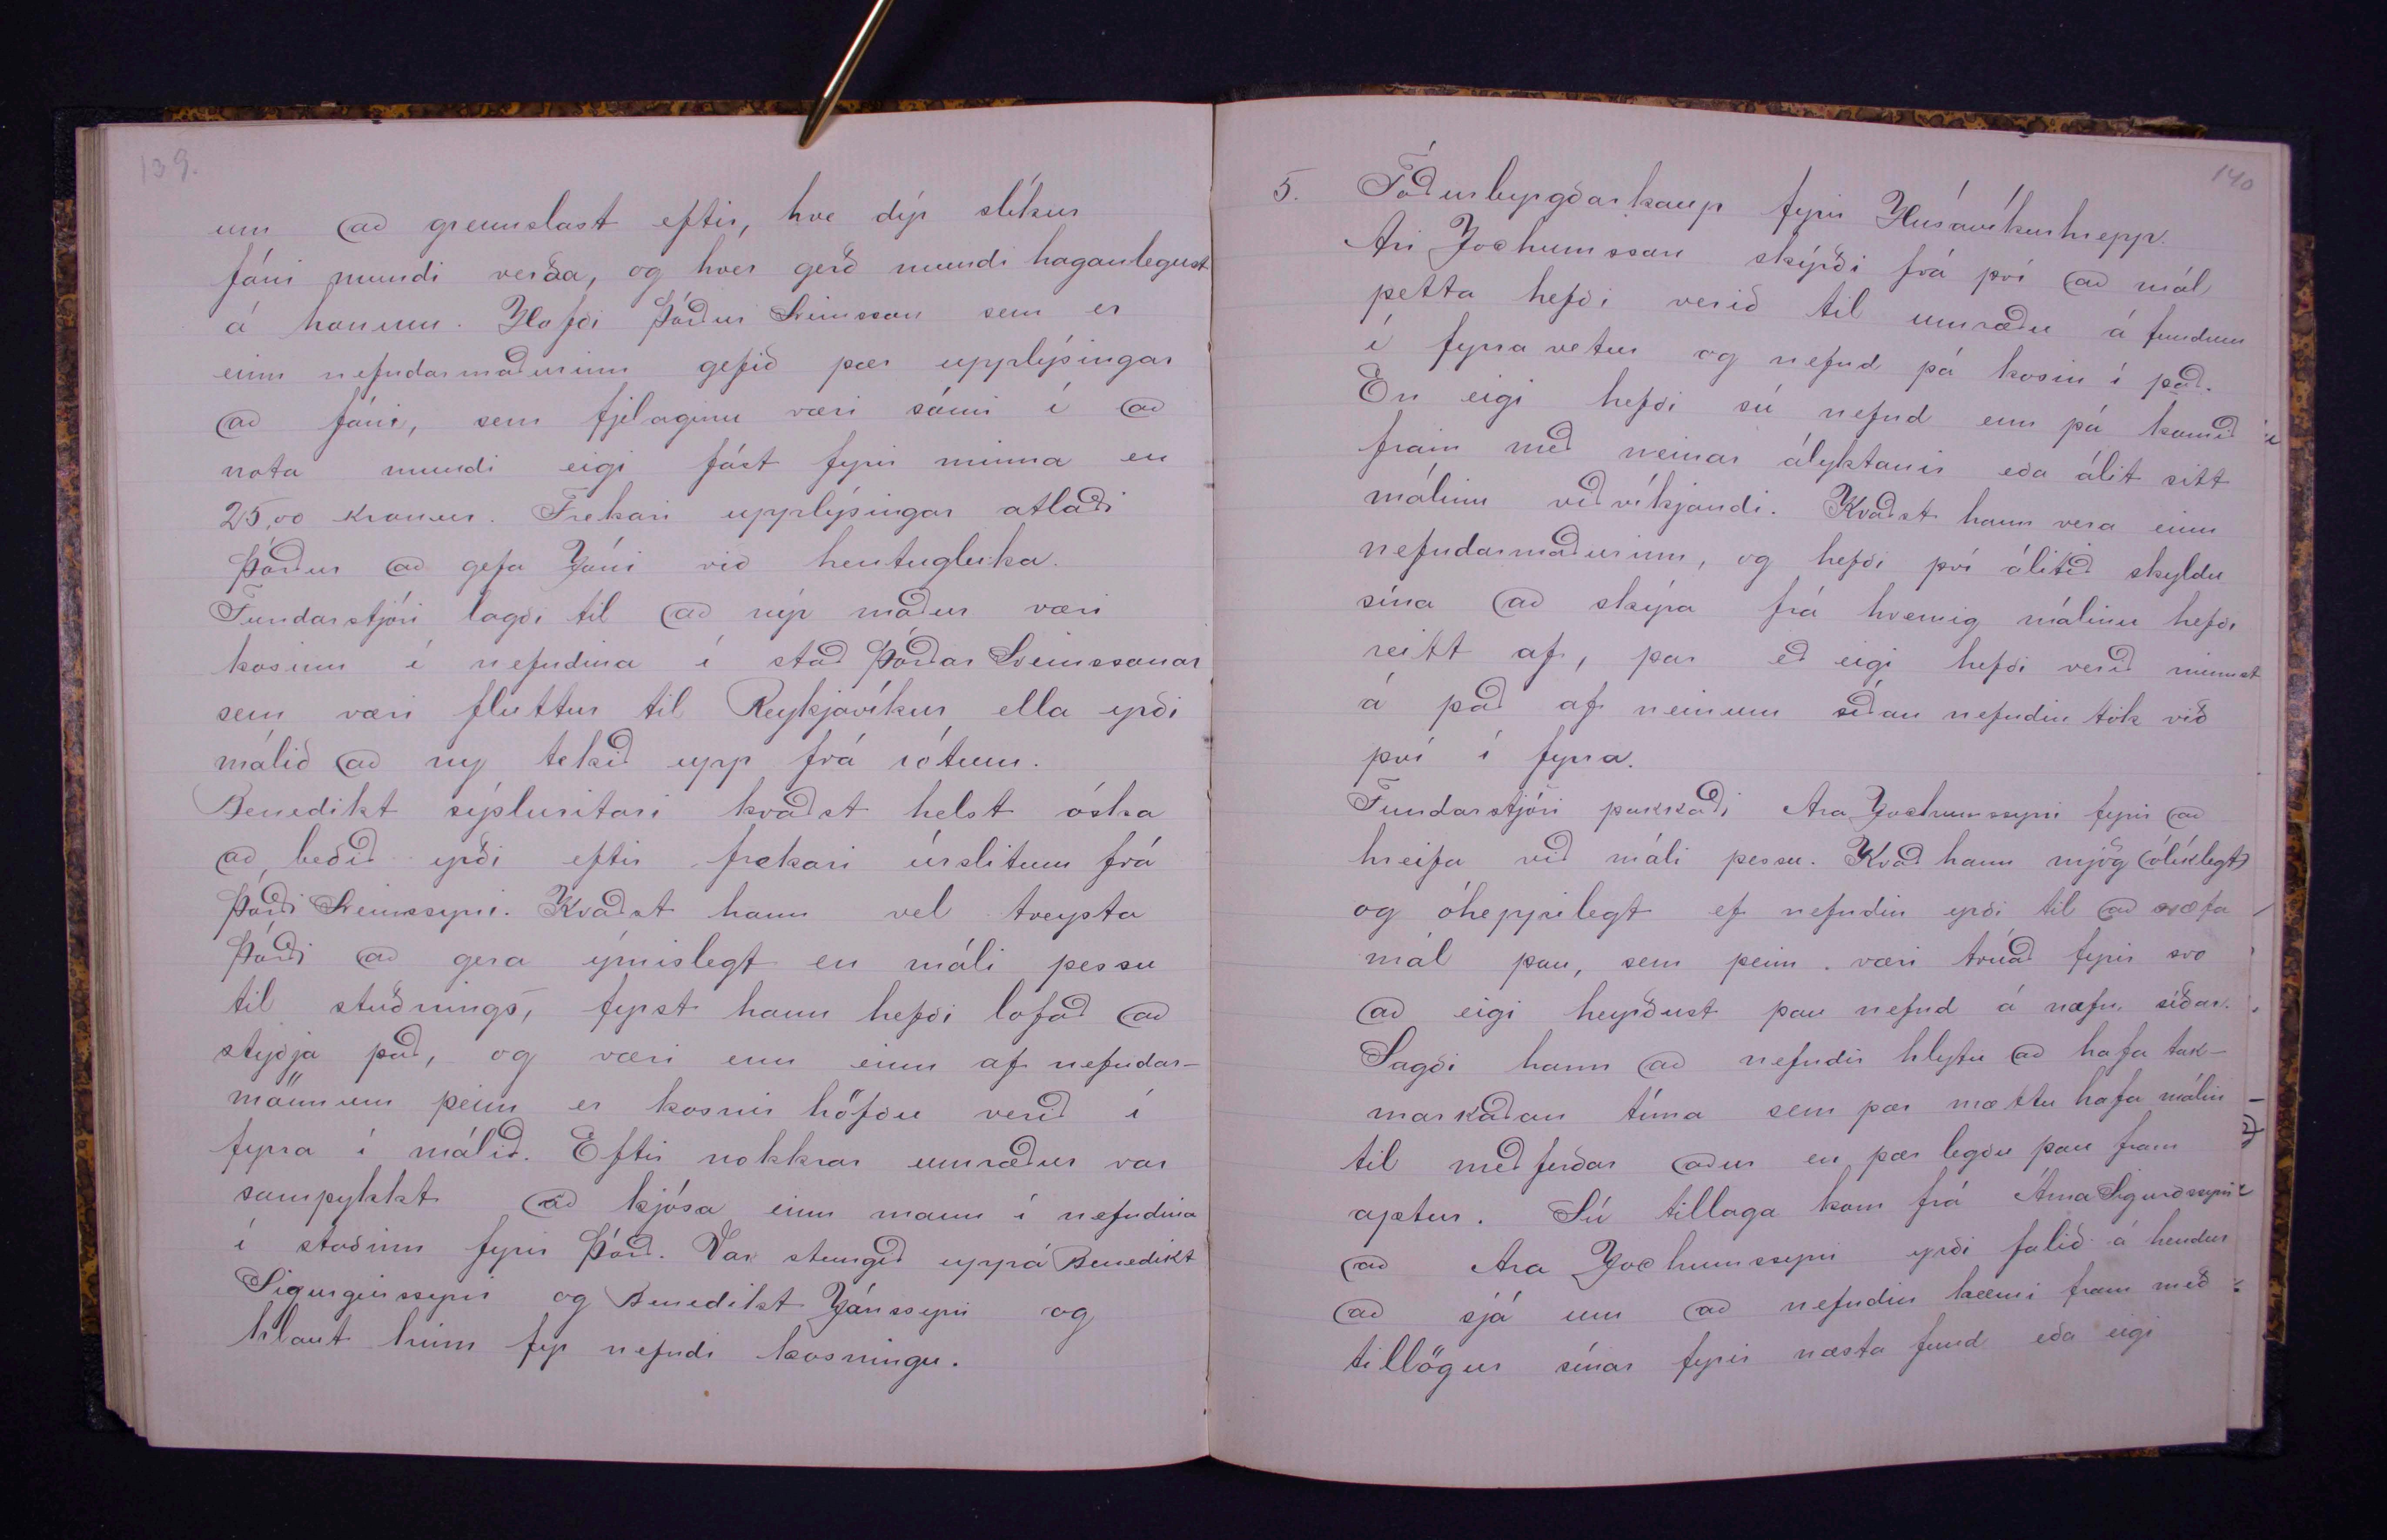 139.
um að grennslast eftir, hve dýr slíkur
fáni mundi verða, og hver gerð mundi haganlegust
á honum. Hafði Þórður Sveinsson sem er
einn nefndarmaðurinn gefið þær upplýsingar
að fáni, sem fjelaginu væri sómi í að
nota mundi eigi fást fyrir minna en
25,00 Kronur. Frekari upplýsingar ætlaði
Þórður að gefa Jóni við hentugleika.
Fundarstjóri lagði til að nýr maður væri
kosinn í nefndina í stað Þórðar Sveinssonar
sem væri fluttur til Reykjavíkur ella yrði
málið að ny tekið upp frá rótum.
Benedikt sýsluritari kvaðst helst óska
að beðið yrði eftir frekari úrslitum frá
Þórði Sveinssyni. Kvaðst hann vel treysta
Þórði að gera ýmislegt en máli þessu
til stuðnings, fyrst hann hefði lofað að
styðja það, og væri enn einn af nefndar-
mönnum þeim er kosnir höfðu verið í
fyrra í málið. Eftir nokkrar umræður var
samþykkt að kjósa einn mann í nefndina
í staðinn fyrir Þórð. Var stungið uppá Benedikt
Sigurgeirssyni og Benedikt Jónssyni og
hlaut hinn fyr nefndi kosningu.
140
5. Fóðurbyrgðarkaup fyrir Húsavíkurhrepp.
Ari Jochumsson skýrði frá því að mál
þetta hefði verið til umræðu á fundum
í fyrra vetur og nefnd þá kosin í það.
En eigi hefði sú nefnd enn þá komið
fram með neinar ályktanir eða álit sitt
málinu viðvíkjandi. Kvaðst hann vera einn
nefndarmaðurinn, og hefði því álitið skyldu
sína að skýra frá hvernig málinu hefði
reitt af, þar eð eigi hefði verið minnst
á það af neinum síðan nefndin tók við
því í fyrra.
Fundarstjóri þakkaði Ara Jochumssyni fyrir að
hreifa við máli þessu. Kvað hann mjög (ólíklegt)
og óheppilegt ef nefndin yrði til að svæfa
mál þau, sem þeim væri trúað fyrir svo
að eigi heyrðust þau nefnd á nafn síðar.
Sagði hann að nefndir hlytu að hafa tak-
markaðan tíma sem þær mættu hafa málin
til meðferðar aður en þær legðu þau fram
aptur. Sú tillaga kom frá Árna Sigurðssyni
að Ara Jochumssyni yrði falið á hendur
að sjá um að nefndin kæmi fram með
tillögur sínar fyrir næsta fund eða eigi